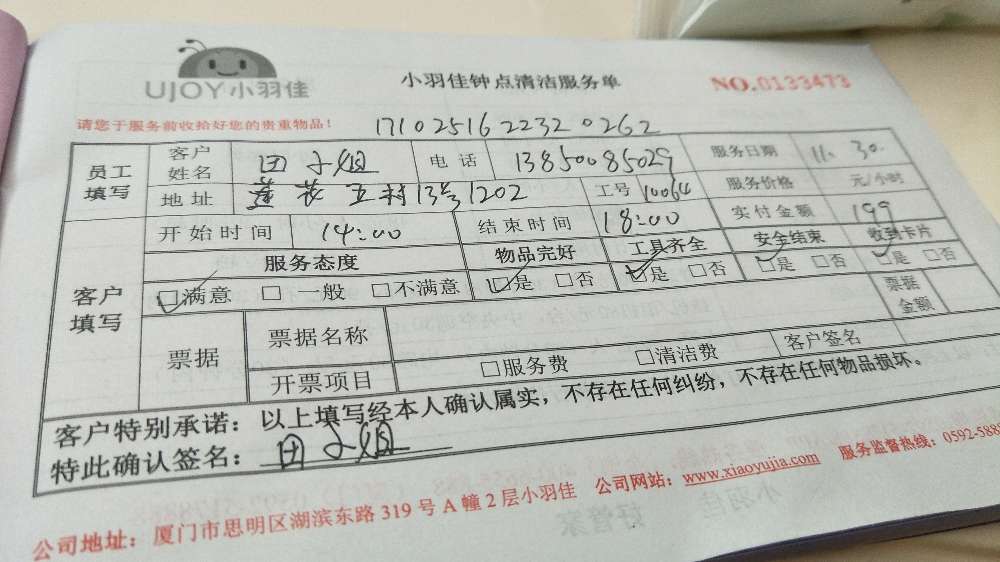 UJOY小羽佳
小羽佳钟点清洁服务单
NO.0133473
请您于服务前收拾好您的贵重物品！
171025162232 0262
员工填写 客户姓名 田小姐 电话 13850085029 服务日期 11. 30.
地址 莲花五村13号1202 工号 10064 服务价格 元/小时
开始时间 14:00 结束时间 18:00 实付金额 199
客户填写 服务态度 物品完好 工具齐全 安全结束 收到卡片
□满意 □一般 □不满意 □是 □否 □是 □否 □是 □否 □是 □否
票据 票据名称 票据金额
开票项目 □服务费 □清洁费 客户签名
客户特别承诺：以上填写经本人确认属实，不存在任何纠纷，不存在任何物品损坏。
特此确认签名：田小姐
公司地址：厦门市思明区湖滨东路319号A幢2层小羽佳 公司网站：www.xiaoyujia.com 服务监督热线：0592-588